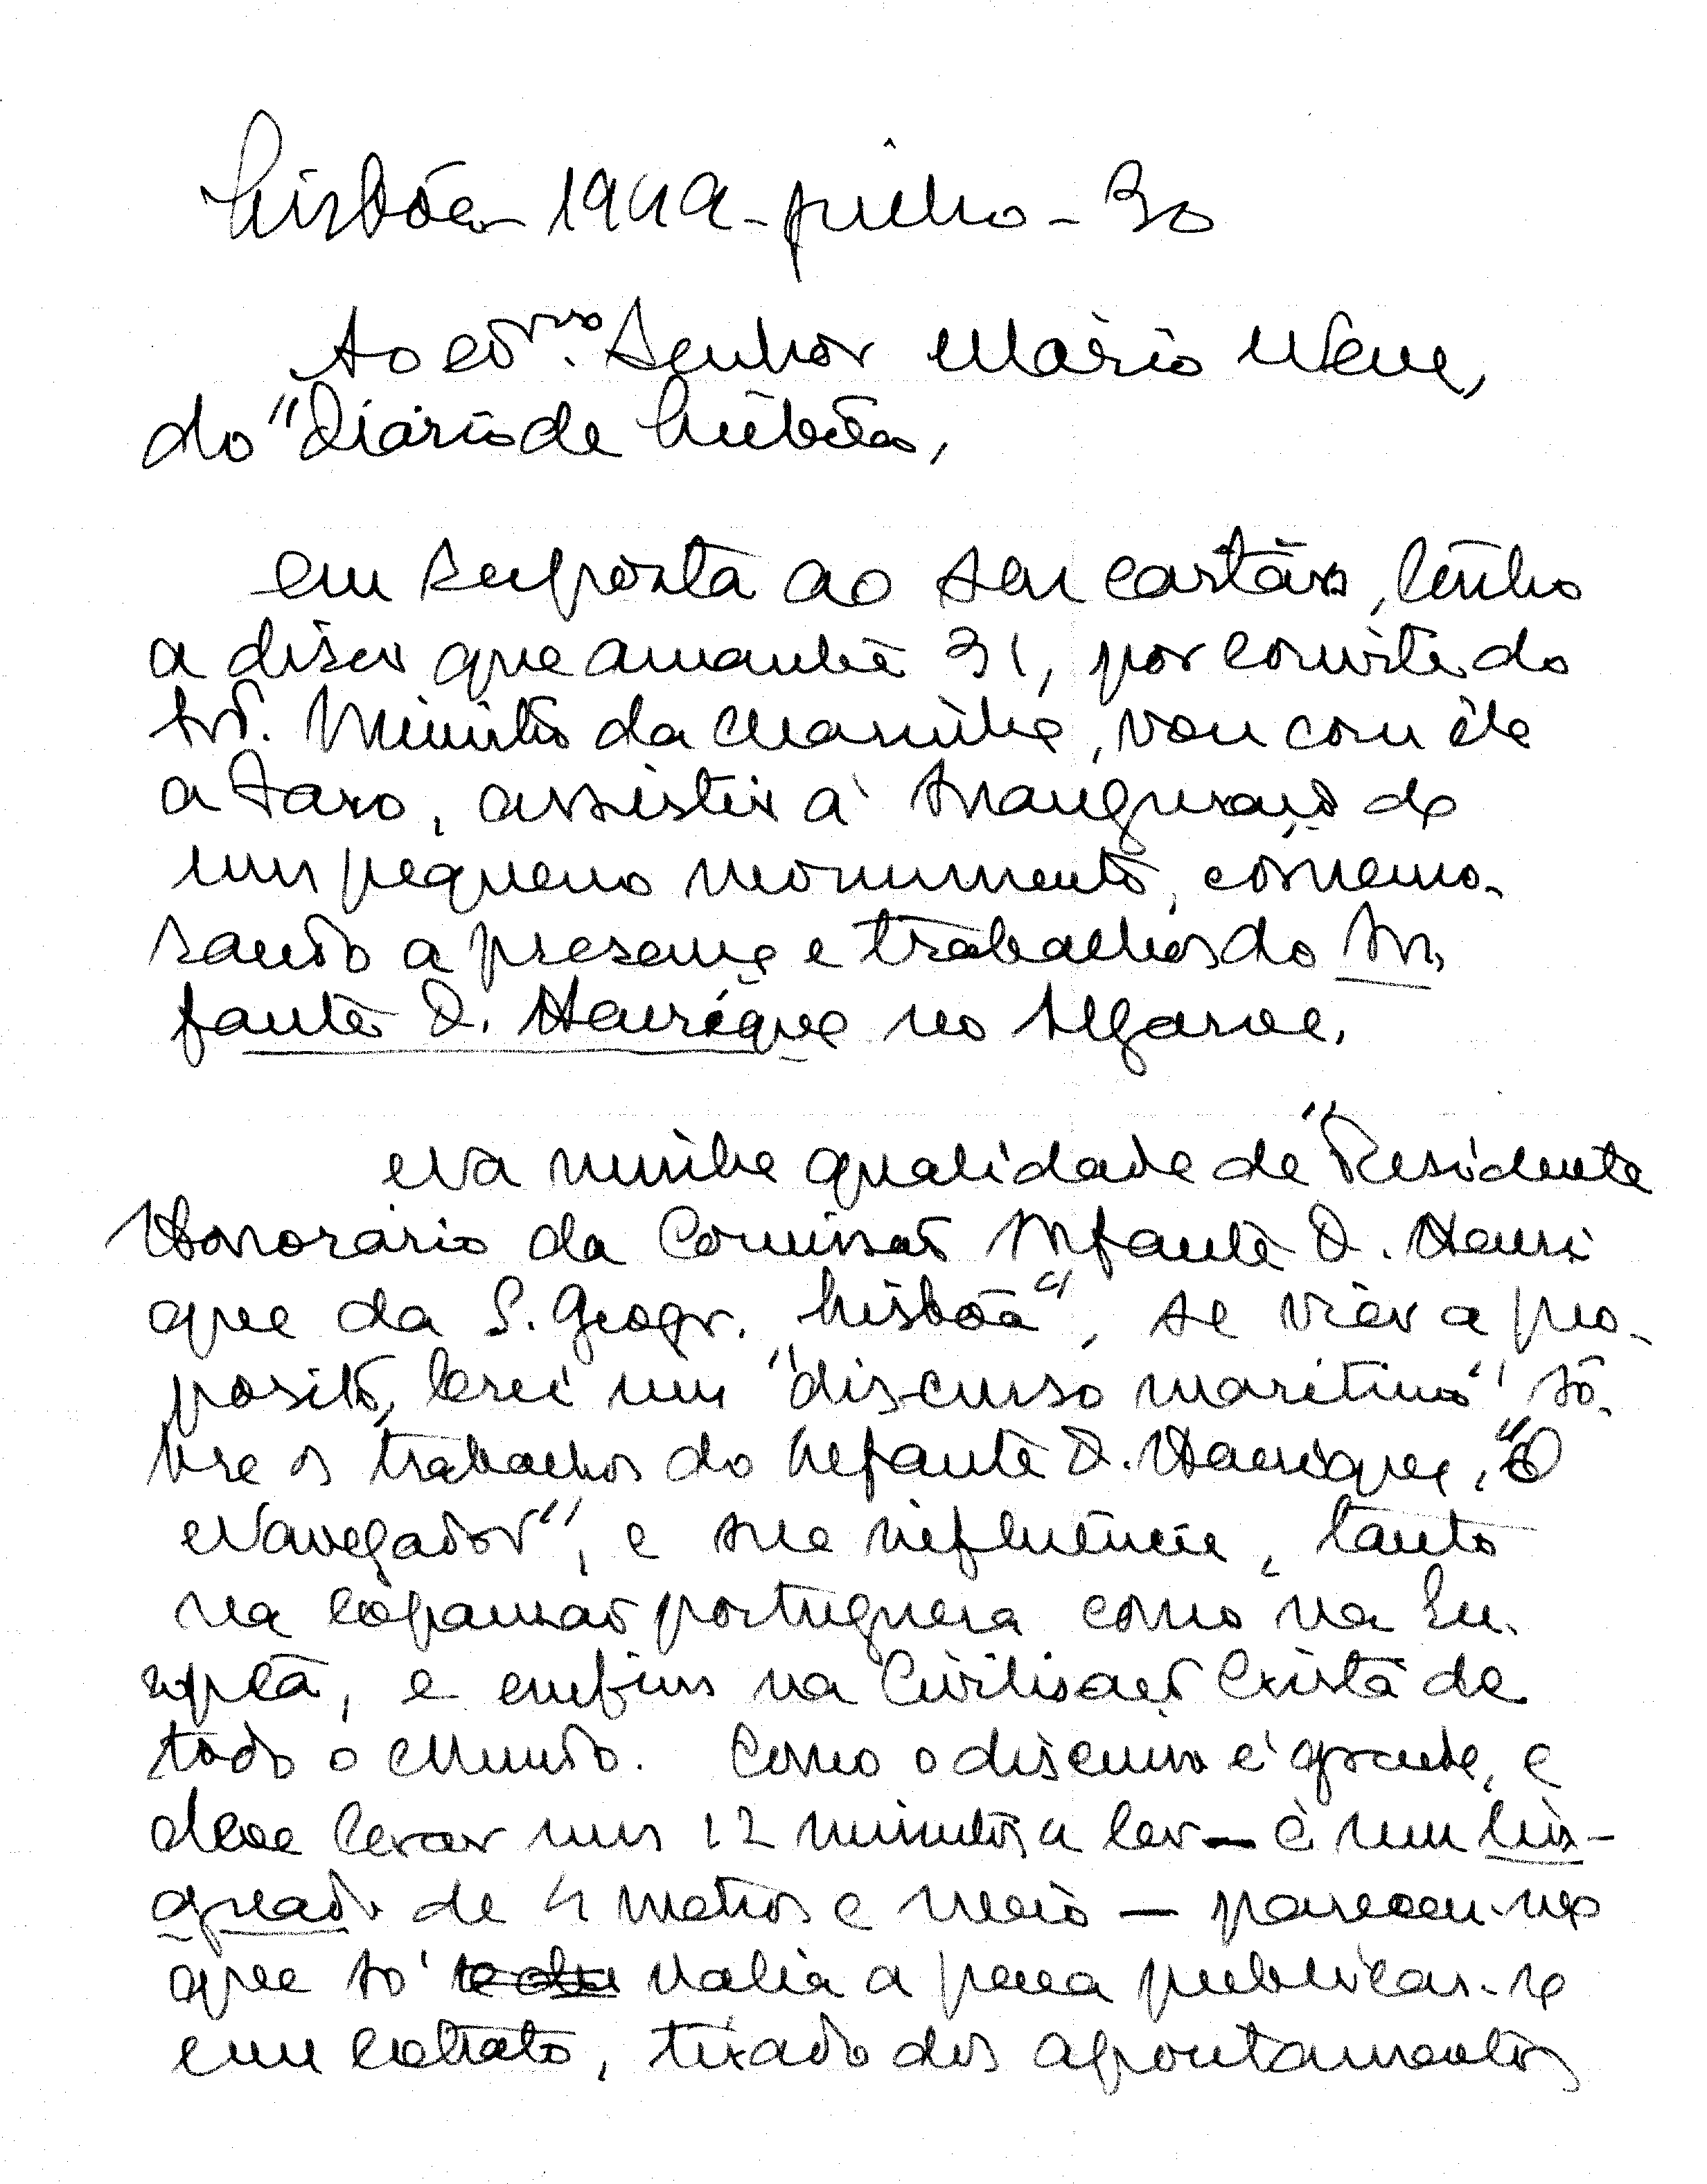 Lisbôa - 1949 - julho - 30
Ao exmo. Senhor Mário Neve,
do "Diário de Lisbôa,
em resposta ao seu cartão, tenho
a diser que amanhã 31, por convite do
Snr. Ministro da Marinha, vou com êle
a Faro, assistir à Inauguração de
um pequeno monumento, comemo-
rando a presença e trabalhos do In-
fante D. Henrique no Algarve.
Na minha qualidade de "Presidente
Honorário da Comissão Infante D. Henri
que da S. Geogr. Lisbôa", se viér a pro-
posito, lerei um "discurso maritimo" sô-
bre os trabalhos do Infante D. Henrique, "O
Navegador", e sua influência, tanto
na expansão portuguesa como na Eu-
ropeia, e enfim na Civilisação Cristã de
todo o Mundo. Como o discurso é grande, e
deve levar uns 12 minutos a ler — é um lin-
guado de 4 metros e meio — pareceu-me
que só valia a pena publicar-se
em extrato, tirado dos apontamentos